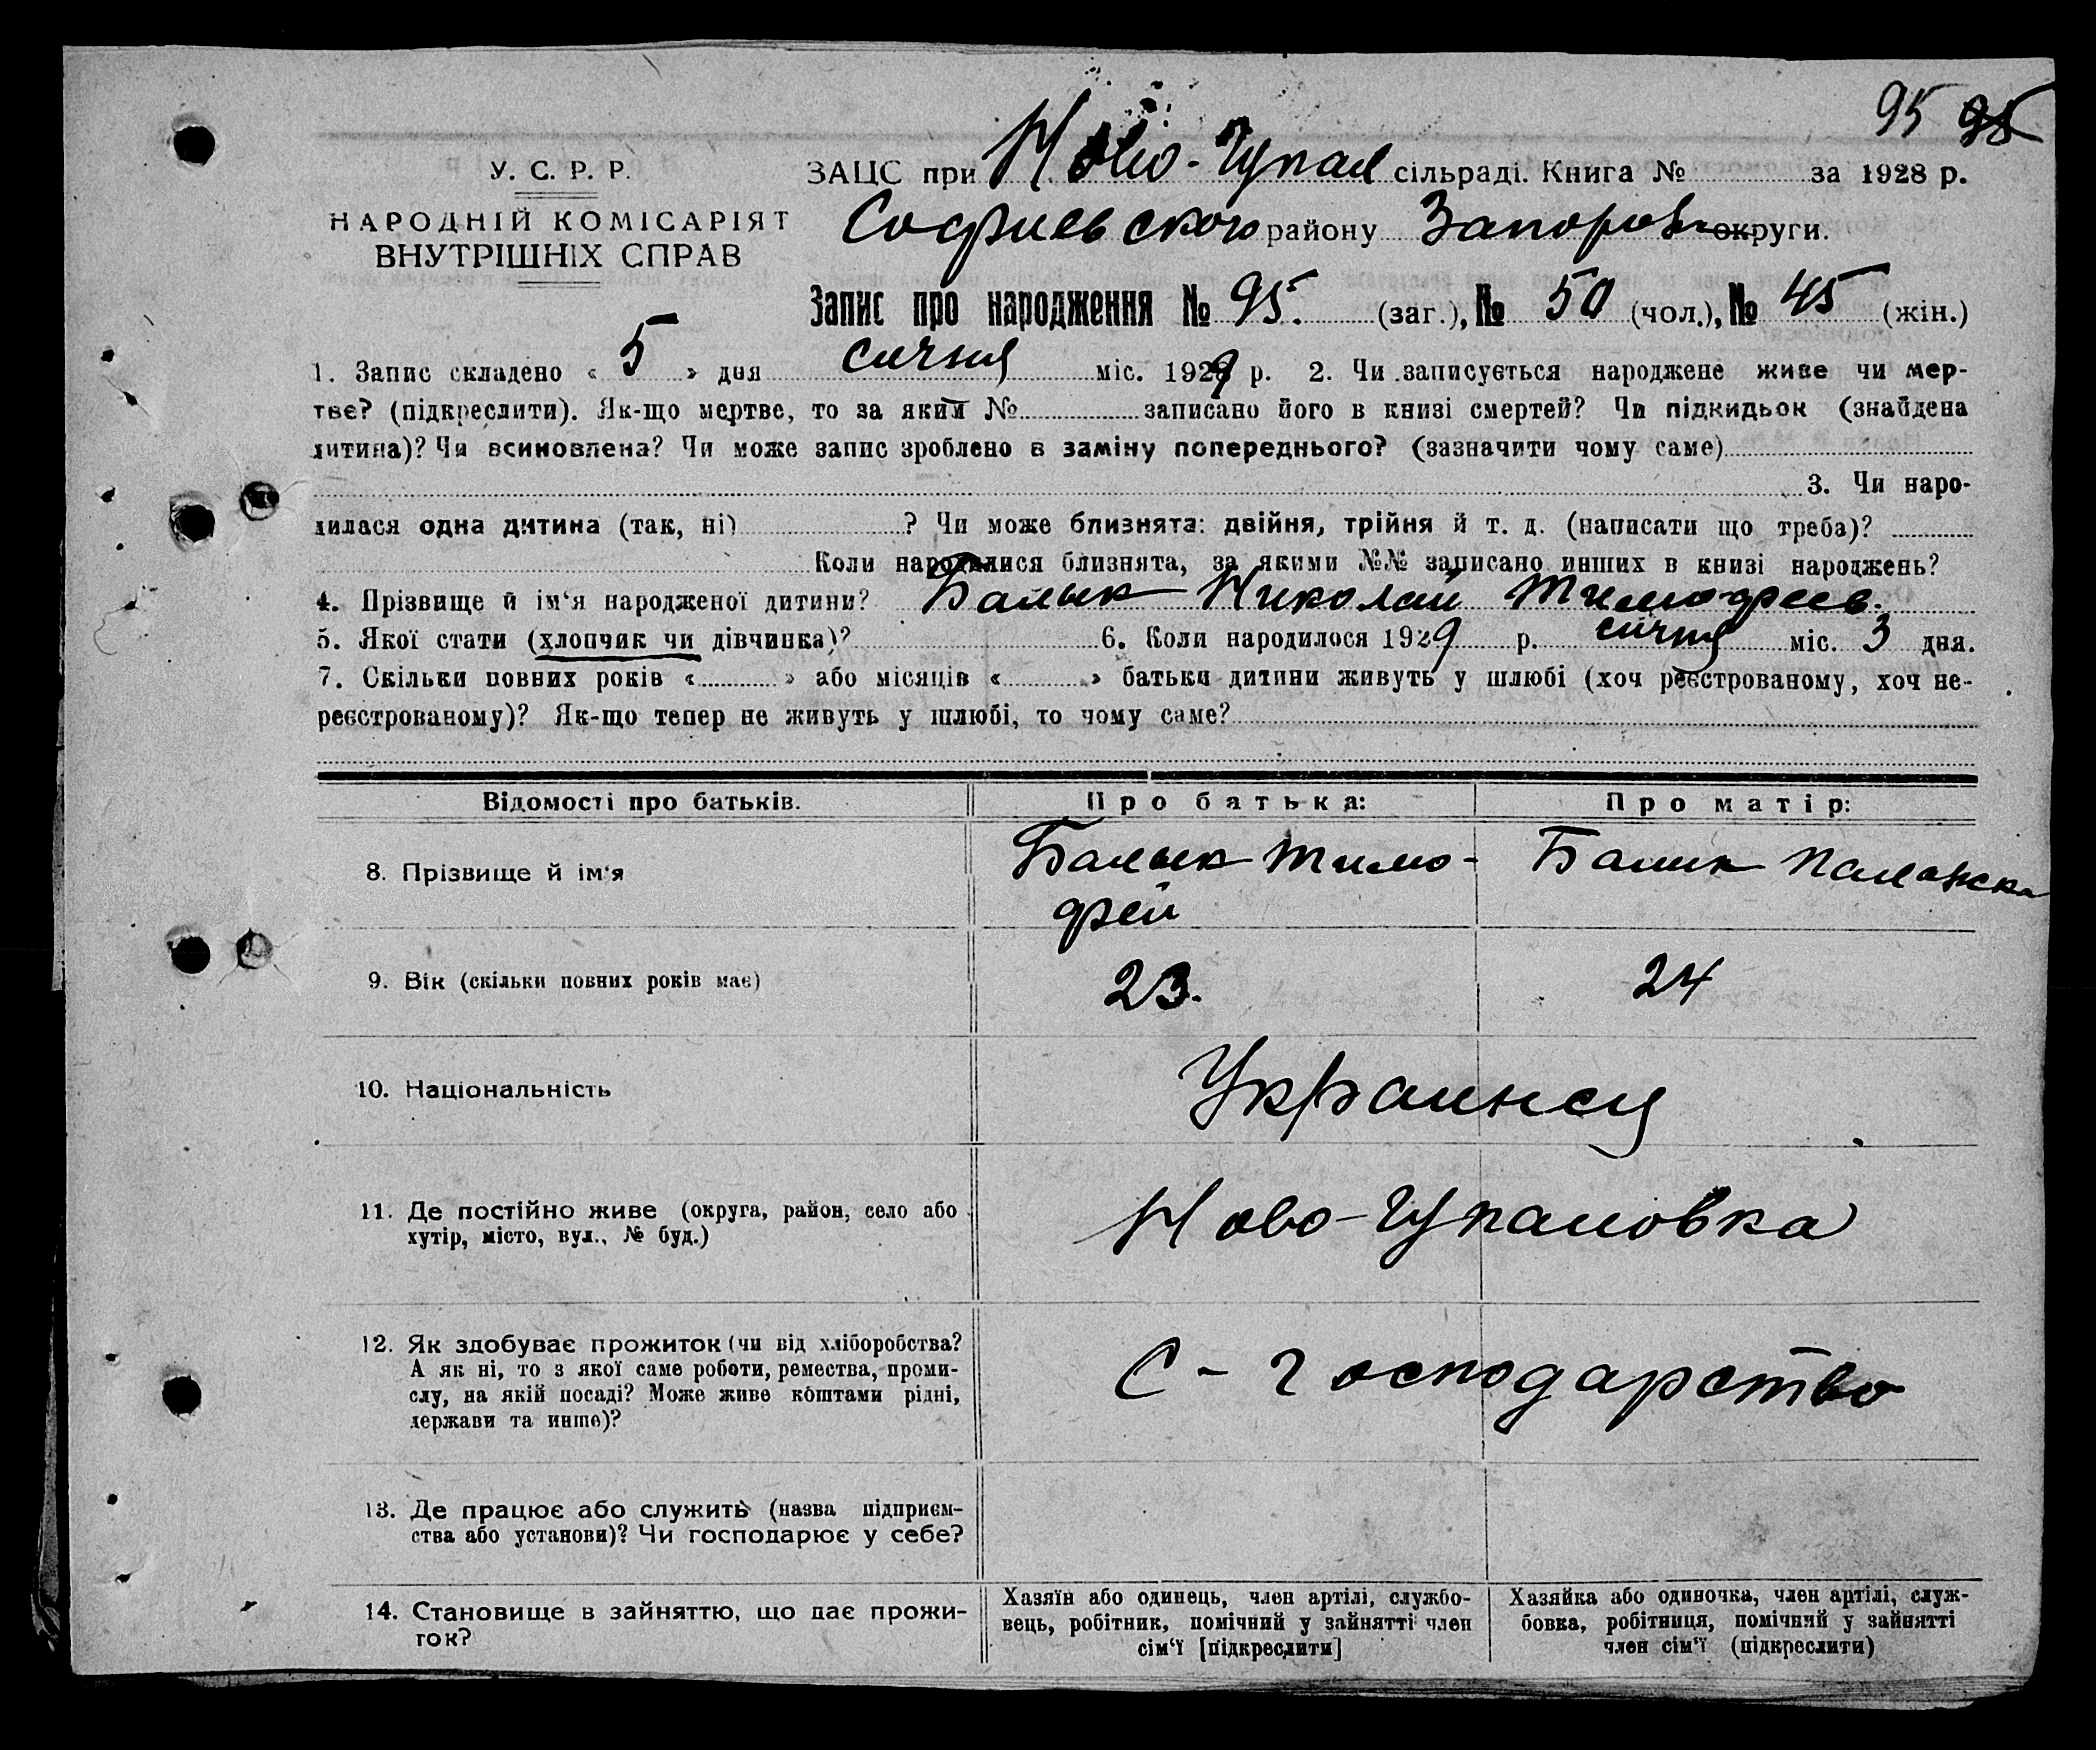 95 95
У. С. Р. Р.
НАРОДНІЙ КОМІСАРІЯТ
ВНУТРІШНІХ СПРАВ
ЗАЦС при Ново-Гупал сільраді. Книга № за 1928 р.
Софиевского району Запорож округи.
Запис про народження № 95. (заг.), № 50 (чол.), № 45 (жін.)
1. Запис складено « 5 » дня сичня міс. 1929 р. 2. Чи записується народжене живе чи мер-
тве? (підкреслити). Як-що мертве, то за яким № записано його в книзі смертей? Чи підкидьок (знайдена
дитина)? Чи всиновлена? Чи може запис зроблено в заміну попереднього? (зазначити чому саме)
3. Чи наро-
дилася одна дитина (так, ні) ? Чи може близнята: двійня, трійня й т. д. (написати що треба)?
Коли народилися близнята, за якими №№ записано инших в книзі народжень?
4. Прізвище й ім‘я народженої дитини? Балык Николай Тимофеев.
5. Якої стати (хлопчик чи дівчинка)? 6. Коли народилося 1929 р. сичня міс. 3 дня.
7. Скільки повних років « » або місяців « » батьки дитини живуть у шлюбі (хоч реєстрованому, хоч не-
реєстрованому)? Як-що тепер не живуть у шлюбі, то чому саме?
Відомості про батьків. Про батька: Про матір:
8. Прізвище й ім‘я Балык Тимо- Балик
фей
9. Вік (скільки повних років має) 23. 24
10. Національність Украинец
11. Де постійно живе (округа, район, село або Ново-Гупаловка
хутір, місто, вул., № буд.)
12. Як здобуває прожиток (чи від хліборобства? С-господарство
А як ні, то з якої саме роботи, ремества, проми-
слу, на якій посаді? Може живе коштами рідні,
держави та инше)?
13. Де працює або служить (назва підприєм-
ства або установи)? Чи господарює у себе?
14. Становище в зайняттю, що дає прожи-
ток?
Хазяїн або одинець, член артілі, службо-
вець, робітник, помічний у зайнятті член
сім‘ї [підкреслити]
Хазяйка або одиночка, член артілі, служ-
бовка, робітниця, помічний у зайнятті
член сім‘ї (підкреслити)